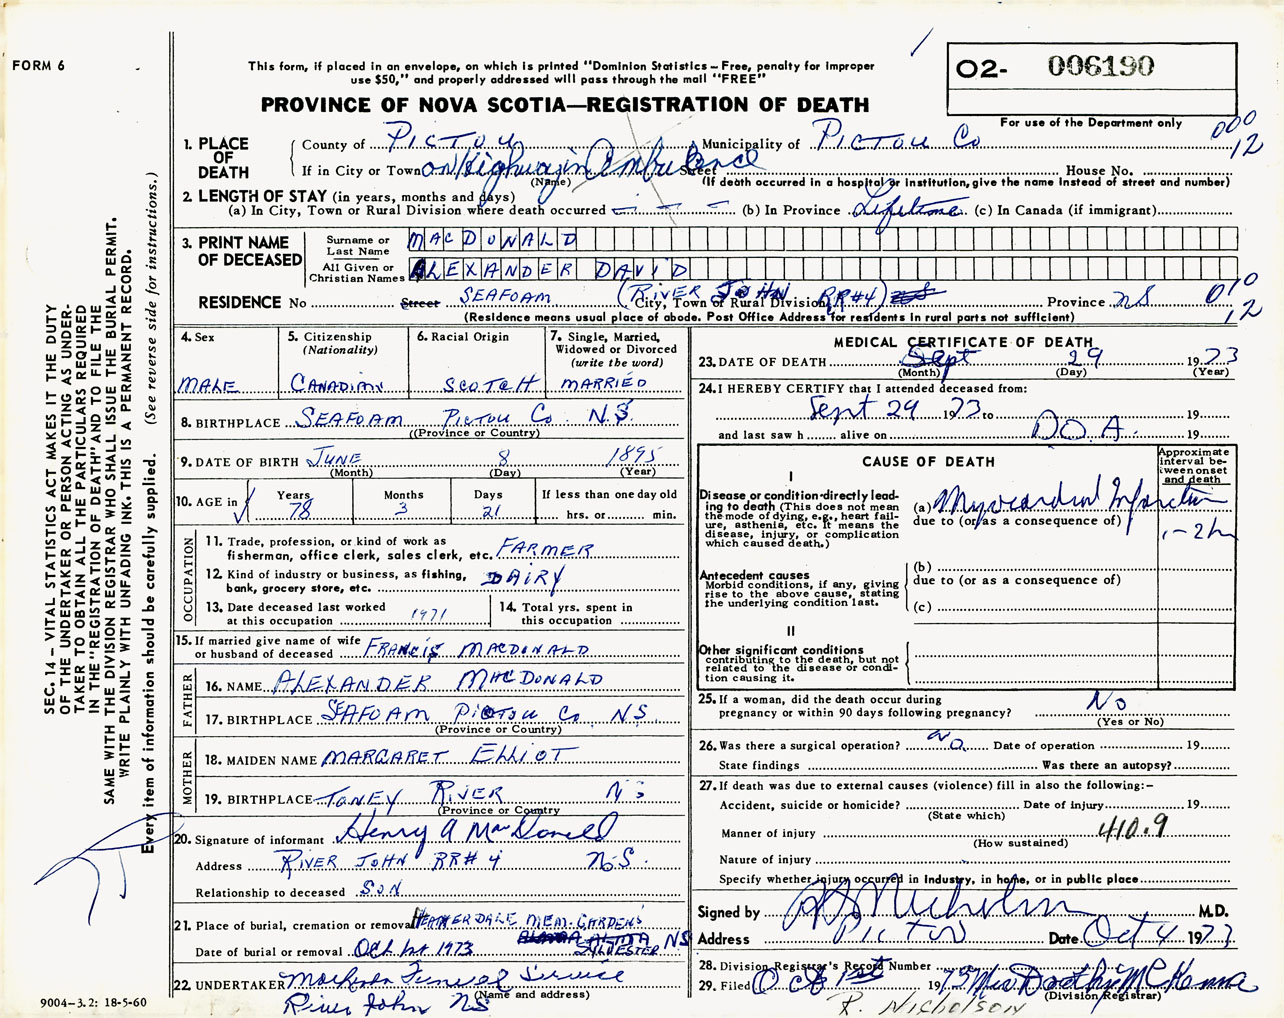 FORM 6
This form, if placed in an envelope, on which is printed "Dominion Statistics – Free, penalty for improper
use $50," and properly addressed will pass through the mail "FREE"
PROVINCE OF NOVA SCOTIA—REGISTRATION OF DEATH
O2- 006190
For use of the Department only
000
12
1. PLACE OF DEATH
County of PICTOU Municipality of PICTOU Co
If in City or Town on Highway in Ambulance Street House No.
(Name) (If death occurred in a hospital or institution, give the name instead of street and number)
2. LENGTH OF STAY (in years, months and days)
(a) In City, Town or Rural Division where death occurred — — — (b) In Province Lifetime (c) In Canada (if immigrant)
3. PRINT NAME OF DECEASED
Surname or Last Name MACDONALD
All Given or Christian Names ALEXANDER DAVID
RESIDENCE No Street SEAFOAM (RIVER JOHN RR#4) City, Town or Rural Division Province NS
010
12
(Residence means usual place of abode. Post Office Address for residents in rural parts not sufficient)
4. Sex
MALE
5. Citizenship
(Nationality)
CANADIAN
6. Racial Origin
SCOTCH
7. Single, Married, Widowed or Divorced
(write the word)
MARRIED
8. BIRTHPLACE SEAFOAM PICTOU Co N.S.
(Province or Country)
9. DATE OF BIRTH JUNE 8 1895
(Month) (Day) (Year)
10. AGE in Years 78 Months 3 Days 21 If less than one day old
hrs. or min.
OCCUPATION
11. Trade, profession, or kind of work as
fisherman, office clerk, sales clerk, etc. FARMER
12. Kind of industry or business, as fishing,
bank, grocery store, etc. DAIRY
13. Date deceased last worked
at this occupation 1971
14. Total yrs. spent in
this occupation
15. If married give name of wife
or husband of deceased FRANCIS MACDONALD
FATHER
16. NAME ALEXANDER MACDONALD
17. BIRTHPLACE SEAFOAM PICTOU Co NS
(Province or Country)
MOTHER
18. MAIDEN NAME MARGARET ELLIOT
19. BIRTHPLACE TONEY RIVER NS
(Province or Country
20. Signature of informant Henry A MacDonald
Address RIVER JOHN RR#4 N.S.
Relationship to deceased SON
21. Place of burial, cremation or removal HEATHERDALE MEM. GARDENS
SYLVESTER NS
Date of burial or removal Oct 1973
22. UNDERTAKER Funeral Service
(Name and address)
River John NS
9004–3.2: 18-5-60
MEDICAL CERTIFICATE OF DEATH
23. DATE OF DEATH Sept 29 1973
(Month) (Day) (Year)
24. I HEREBY CERTIFY that I attended deceased from:
Sept 29 1973 to 19
and last saw h alive on D.O.A. 19
CAUSE OF DEATH
Approximate interval between onset and death
I
Disease or condition directly leading to death (This does not mean the mode of dying, e.g., heart failure, asthenia, etc. It means the disease, injury, or complication which caused death.)
(a) Myocardial Infarction
due to (or as a consequence of)
1-2h
Antecedent causes
Morbid conditions, if any, giving rise to the above cause, stating the underlying condition last.
(b)
due to (or as a consequence of)
(c)
II
Other significant conditions
contributing to the death, but not related to the disease or condition causing it.
25. If a woman, did the death occur during
pregnancy or within 90 days following pregnancy? No
(Yes or No)
26. Was there a surgical operation? no Date of operation 19
State findings Was there an autopsy?
27. If death was due to external causes (violence) fill in also the following:–
Accident, suicide or homicide? Date of injury 19
(State which)
Manner of injury 410.9
(How sustained)
Nature of injury
Specify whether injury occurred in Industry, in home, or in public place
Signed by Nicholson M.D.
Address Pictou Date Oct 4 1973
28. Division Registrar's Record Number
29. Filed Oct 1st 1973 Mrs Dorothy McKenna
(Division Registrar)
R. NICHOLSON
SEC. 14 – VITAL STATISTICS ACT MAKES IT THE DUTY
OF THE UNDERTAKER OR PERSON ACTING AS UNDER-
TAKER TO OBTAIN ALL THE PARTICULARS REQUIRED
IN THE "REGISTRATION OF DEATH" AND TO FILE THE
SAME WITH THE DIVISION REGISTRAR WHO SHALL ISSUE THE BURIAL PERMIT.
WRITE PLAINLY WITH UNFADING INK. THIS IS A PERMANENT RECORD.
Every item of information should be carefully supplied. (See reverse side for instructions.)